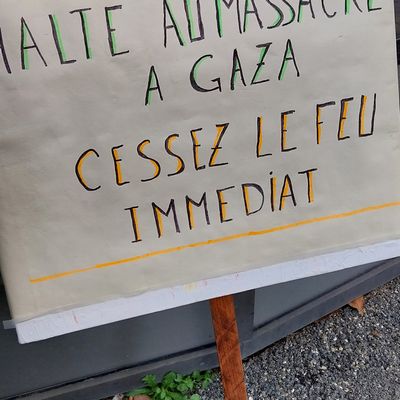 HALTE AU MASSACRE
A GAZA
CESSEZ LE FEU
IMMEDiAT